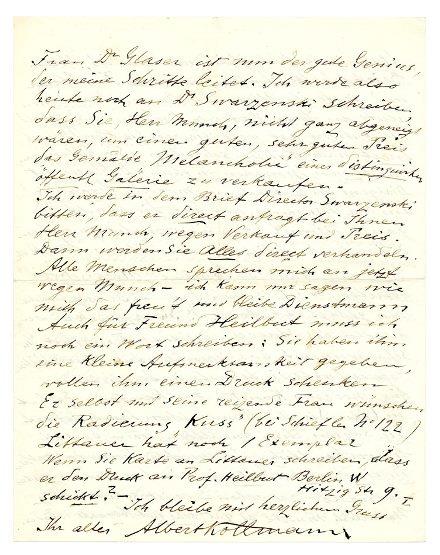 Frau Dr Glaser ist nun der gute Genius,
der meine Schritte leitet. Ich werde also
heute noch an Dr Swarzenski schreiben,
dass Sie, Herr Munch, nicht ganz abgeneigt
wären, um einen guten, sehr guten Preis
das Gemälde "Melancholie" einer distinguirten
öffentl. Galerie zu verkaufen.
Ich werde in dem Brief Director Swarzenski
bitten, dass er direct anfragt bei Ihnen
Herr Munch, wegen Verkauf und Preis.
Dann werden Sie Alles direct verhandeln.
Alle Menschen sprechen mich an jetzt
wegen Munch – ich kann nur sagen wie
mich das freut und bleibe Dienstmann
Auch für Freund Heilbut muss ich
noch ein Wort schreiben: Sie haben ihm
eine kleine Aufmerksamkeit gegeben,
wollen ihm einen Druck schenken
Er selbst und seine reizende Frau wünschen
die Radierung "Kuss" (bei Schiefler No 122)
Littauer hat noch 1 Exemplar
Wenn Sie Karte an Littauer schreiben, dass
er den Druck an Prof. Heilbut Berlin W
Hitzig Str 9. I.
schickt? –
Ich bleibe mit herzlichem Gruss
Ihr alter Albert Kollmann